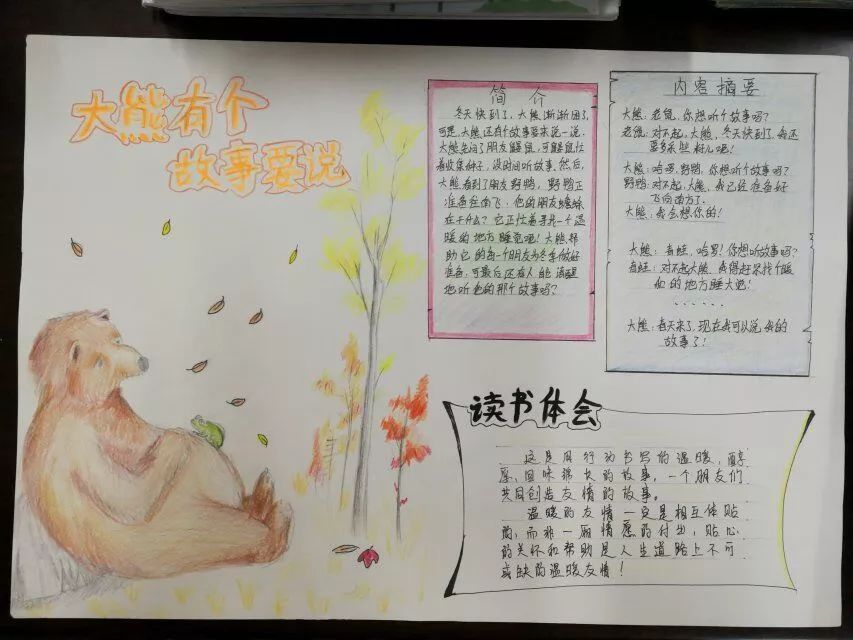 大熊有个
故事要说
简介
冬天快到了，大熊渐渐困了，
可是，大熊还有个故事要来说一说，
大熊先问了朋友鼹鼠，可鼹鼠忙
着收集种子，没时间听故事，然后，
大熊看到了朋友野鸭，野鸭正
准备往南飞；他的朋友蟾蜍
在干什么？它正忙着寻找一个温
暖的地方睡觉呢！大熊帮
助它的每一个朋友为冬季做好
准备，可最后还有人能清醒
地听他的那个故事吗？
内容摘要
大熊：老鼠，你想听个故事吗？
老鼠：对不起，大熊，冬天快到了，我还
要多采些籽儿呢！
大熊：哈啰，野鸭，你想听个故事吗？
野鸭：对不起，大熊，我已经准备好
飞向南方了。
大熊：我会想你的！
大熊：青蛙，哈罗！你想听故事吗？
青蛙：对不起大熊，我得赶呆找个暖
和的地方睡大觉！
······
大熊：春天来了，现在我可以说我的
故事了！
读书体会
这是用行动书写的温暖，醇
厚，回味绵长的故事，一个朋友们
共同创造友情的故事。
温暖的友情一定是相互体贴
的，而非一厢情愿的付出，贴心
的关怀和帮助是人生道路上不可
或缺的温暖友情！